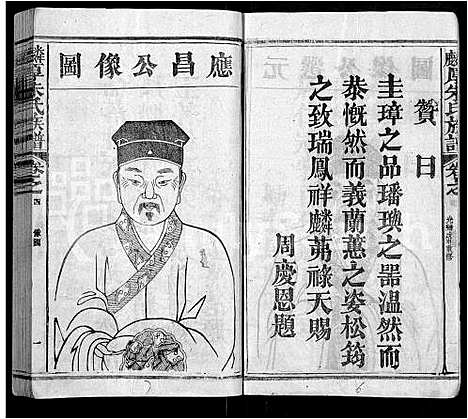 麟厚朱氏族譜
卷之
贊曰
圭璋之品璠璵之器溫然而
恭慨然而義蘭蕙之姿松筠
之致瑞鳳祥麟茀祿天賜
周慶恩題
應昌公像圖
麟厚朱氏族譜
卷之四
像圖
一